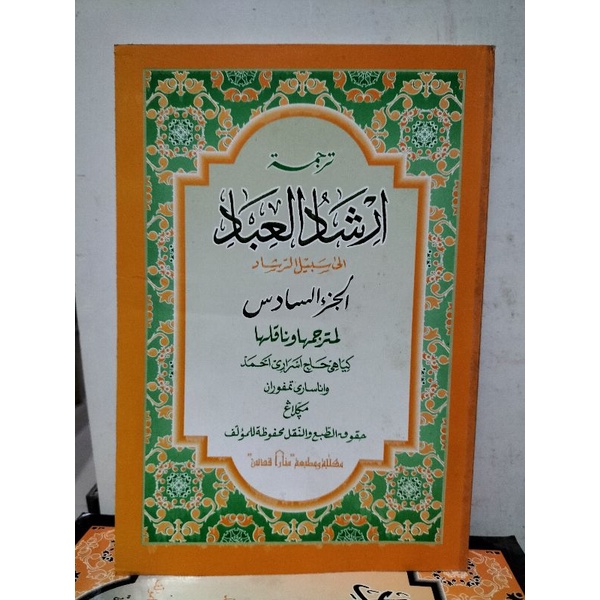 ترجمة
ارشاد العباد
الى سبيل الرشاد
الجزء السادس
لمترجمها وناقلها
كياهي حاج اسراري احمد
واناساري تمفوران
مڬلاڠ
حقوق الطبع والنقل محفوظة للمؤلف
مكتبة ومطبعة "منارا قدس"